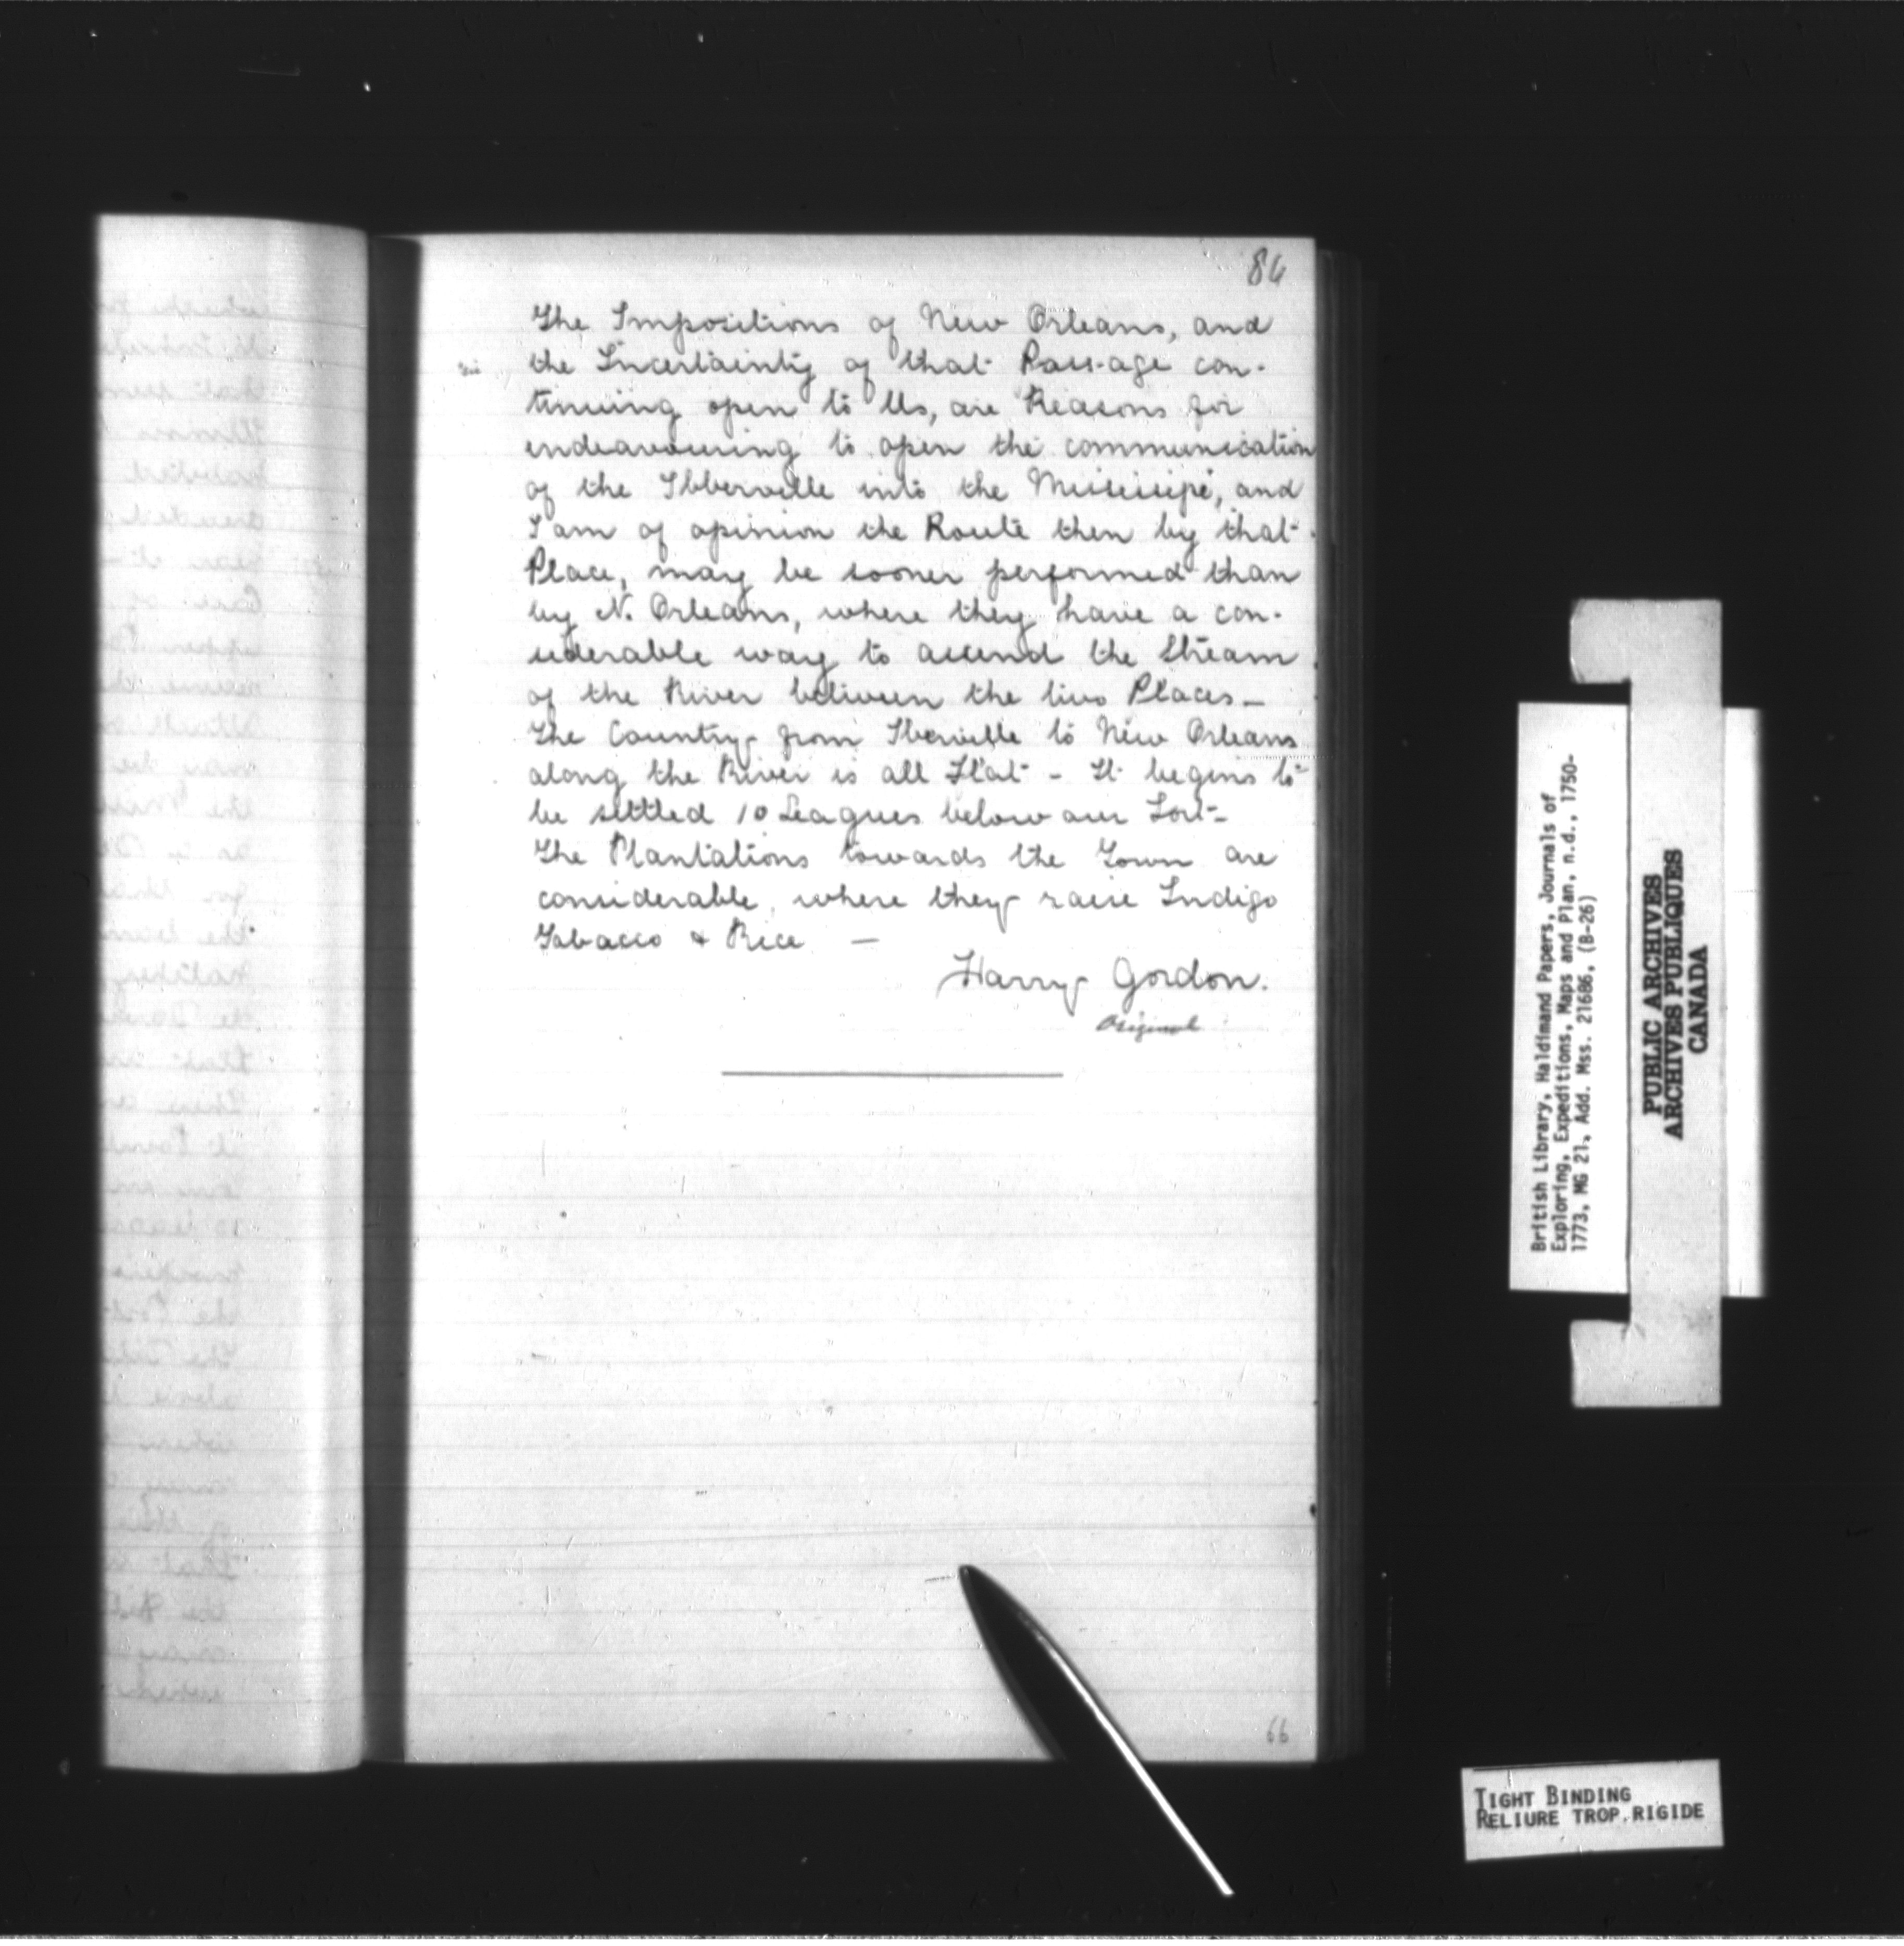 86
The Impositions of New Orleans, and
the Incertainty of that Pass-age con-
tinuing open to Us, are Reasons for
endeavouring to open the communication
of the Ibberville into the Missisipi, and
I am of opinion the Route then by that
Place, may be sooner performed than
by N. Orleans, where they have a con-
siderable way to ascend the Stream
of the River between the two Places —
The Country from Iberville to New Orleans
along the River is all Flat - It begins to
be settled 10 Leagues below our Fort -
The Plantations towards the Town are
considerable, where they raise Indigo
Tobacco & Rice —
Harry Gordon.
Original
66
British Library, Haldimand Papers, Journals of
Exploring, Expeditions, Maps and Plan, n.d., 1750-
1773, MG 21, Add. Mss. 21686, (B-26)
PUBLIC ARCHIVES
ARCHIVES PUBLIQUES
CANADA
TIGHT BINDING
RELIURE TROP RIGIDE